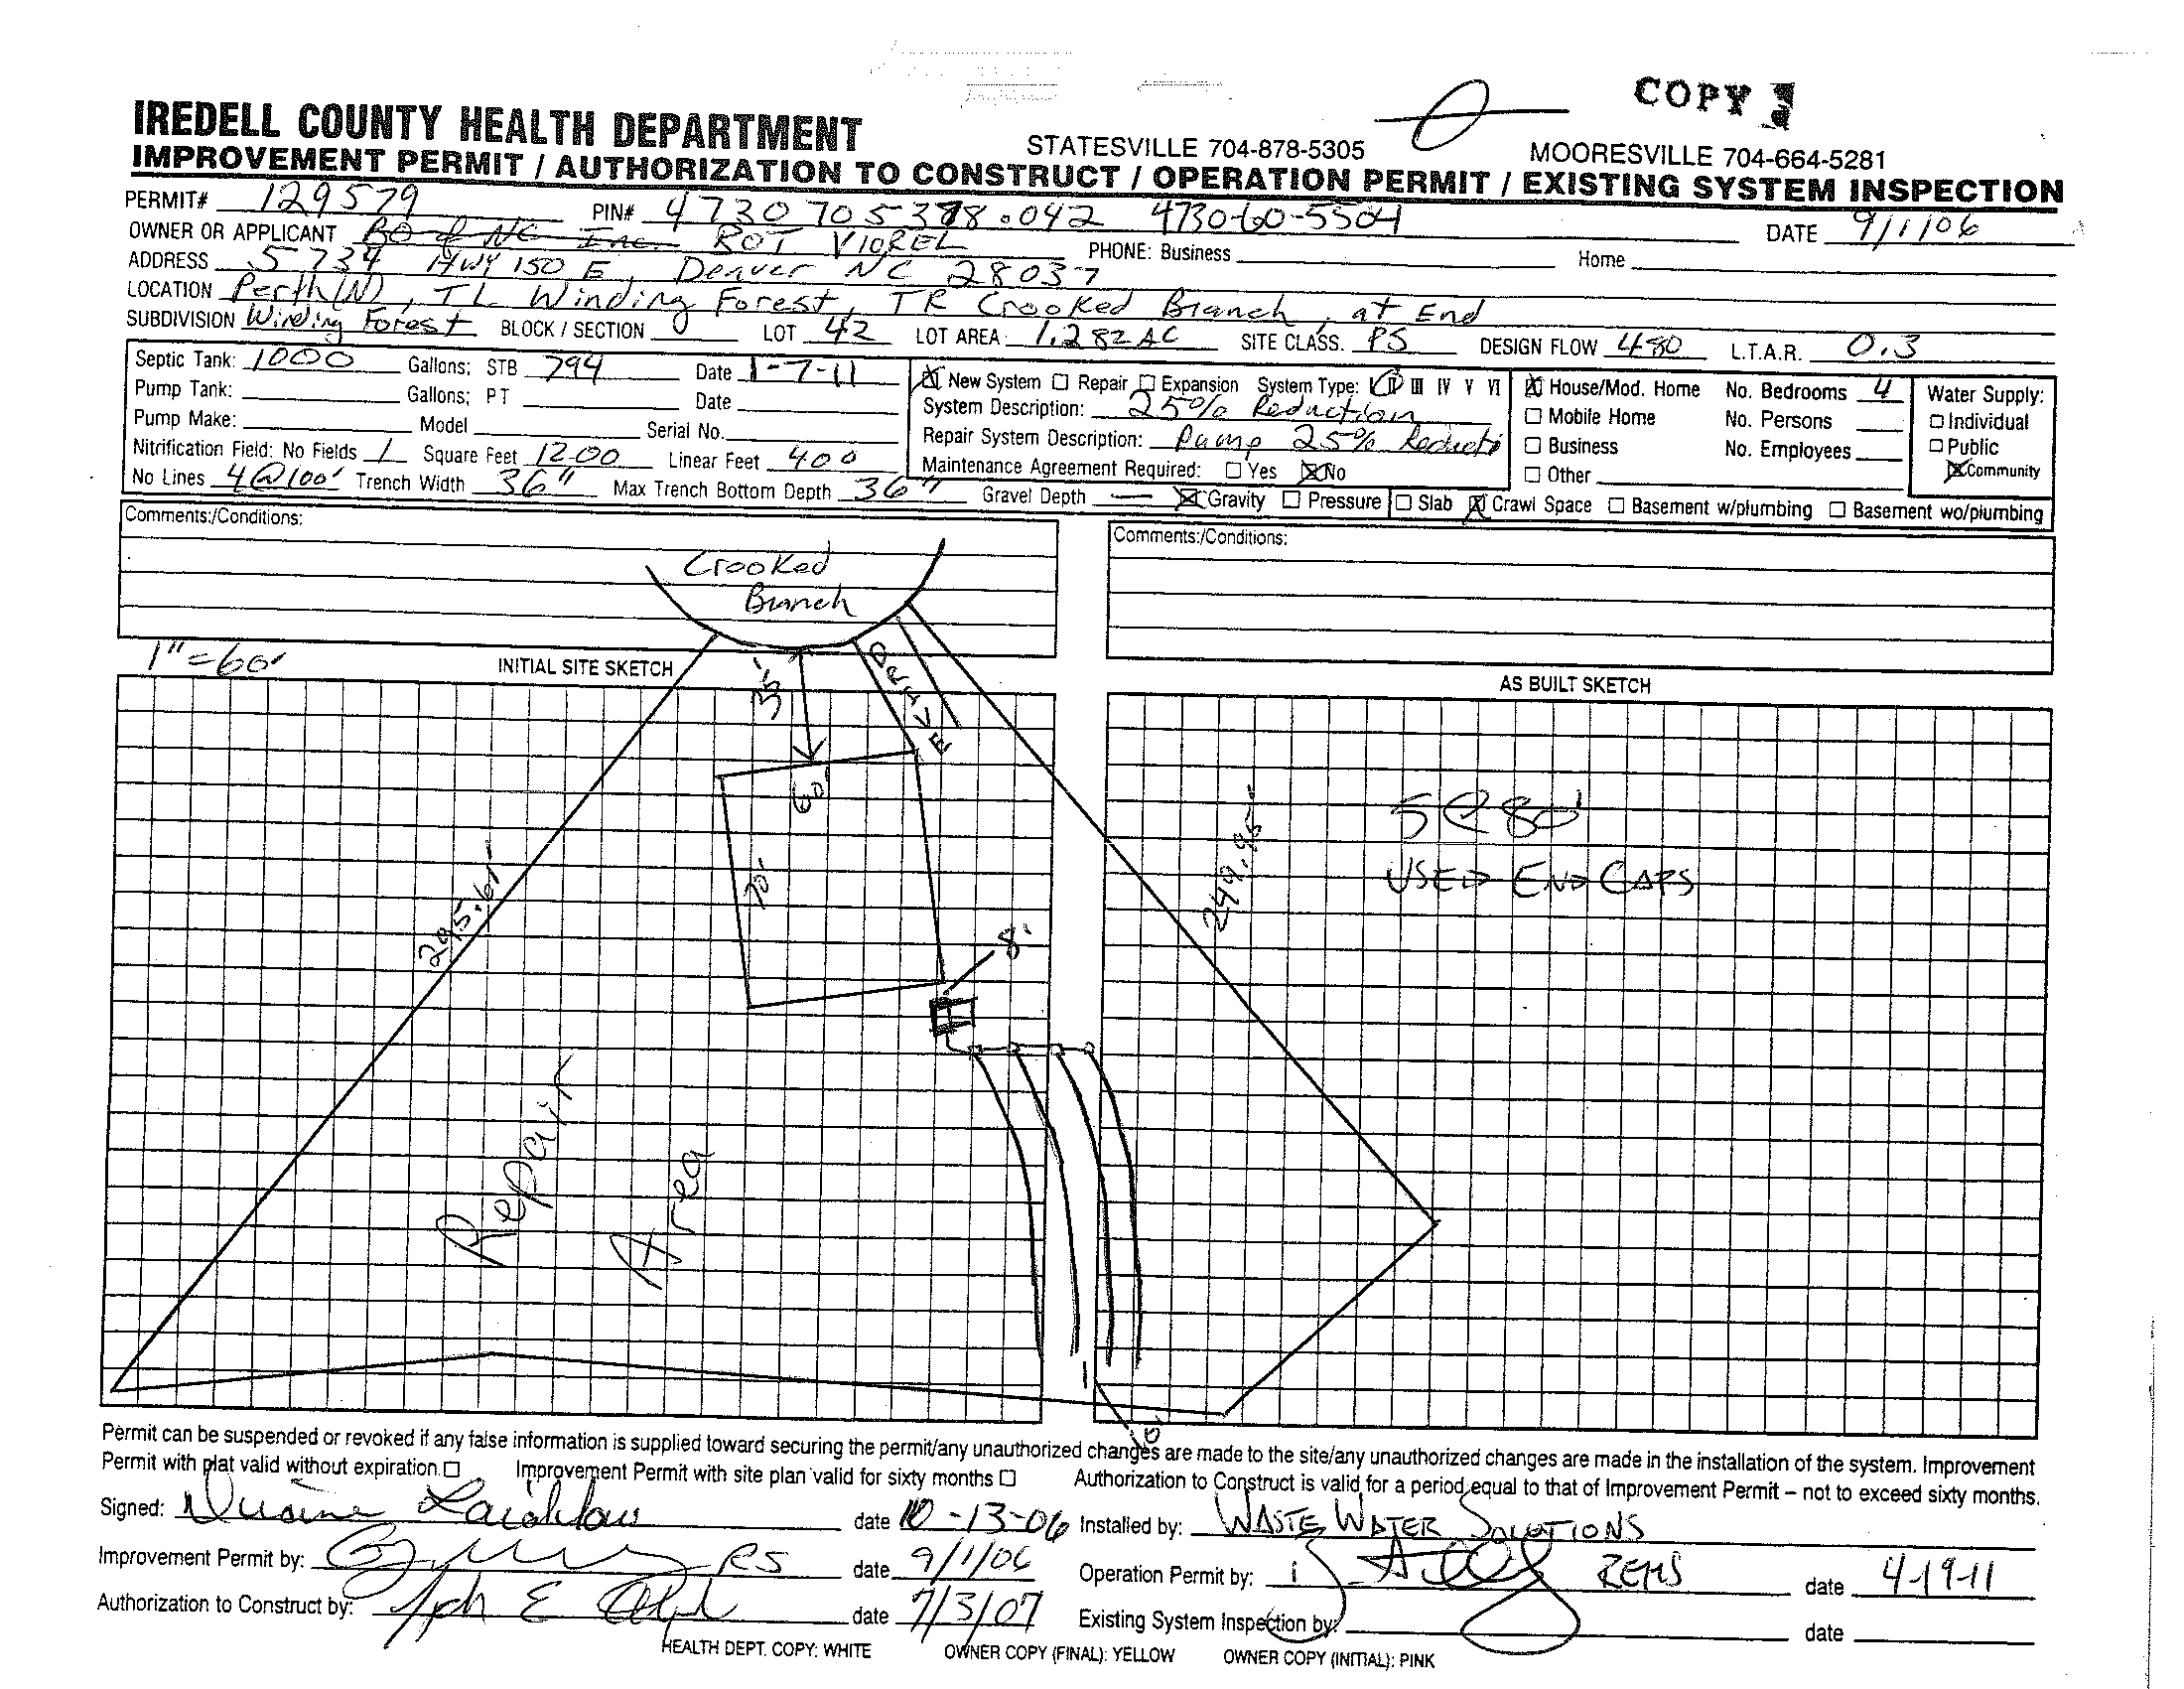 COPY
IREDELL COUNTY HEALTH DEPARTMENT STATESVILLE 704-878-5305 MOORESVILLE 704-664-5281
IMPROVEMENT PERMIT / AUTHORIZATION TO CONSTRUCT / OPERATION PERMIT / EXISTING SYSTEM INSPECTION
PERMIT# 129579 PIN# 4730705378.042 4730-60-5504 DATE 9/1/06
OWNER OR APPLICANT BO of NC Inc. ROT VIOREL PHONE: Business Home
ADDRESS 5734 HWY 150 E, Denver NC 28037
LOCATION Perth(N), TL Winding Forest, TR Crooked Branch, at End
SUBDIVISION Winding Forest BLOCK / SECTION 0 LOT 42 LOT AREA 1.282 AC SITE CLASS. PS DESIGN FLOW 480 L.T.A.R. 0.3
Septic Tank: 1000 Gallons; STB 794 Date 1-7-11
Pump Tank: Gallons; PT Date
Pump Make: Model Serial No.
Nitrification Field: No Fields 1 Square Feet 1200 Linear Feet 400
No Lines 4@100' Trench Width 36" Max Trench Bottom Depth 36" Gravel Depth — Gravity Pressure Slab Crawl Space Basement w/plumbing Basement wo/plumbing
New System Repair Expansion System Type: II III IV V VI
System Description: 25% Reduction
Repair System Description: Pump 25% Reducti
Maintenance Agreement Required: Yes No
House/Mod. Home No. Bedrooms 4
Mobile Home No. Persons
Business No. Employees
Other
Water Supply:
Individual
Public
Community
Comments:/Conditions:
Comments:/Conditions:
Crooked
Branch
1"=60'
INITIAL SITE SKETCH
AS BUILT SKETCH
35'
DRIVE
60'
70'
295.61'
249.95'
8'
5@80'
USED END CAPS
Repair
Area
10'
Permit can be suspended or revoked if any false information is supplied toward securing the permit/any unauthorized changes are made to the site/any unauthorized changes are made in the installation of the system. Improvement
Permit with plat valid without expiration. Improvement Permit with site plan valid for sixty months Authorization to Construct is valid for a period equal to that of Improvement Permit – not to exceed sixty months.
Signed: date 10-13-06 Installed by: WASTE WATER SOLUTIONS
Improvement Permit by: RS date 9/1/06 Operation Permit by: REHS date 4-19-11
Authorization to Construct by: date 7/3/07 Existing System Inspection by: date
HEALTH DEPT. COPY: WHITE OWNER COPY (FINAL): YELLOW OWNER COPY (INITIAL): PINK